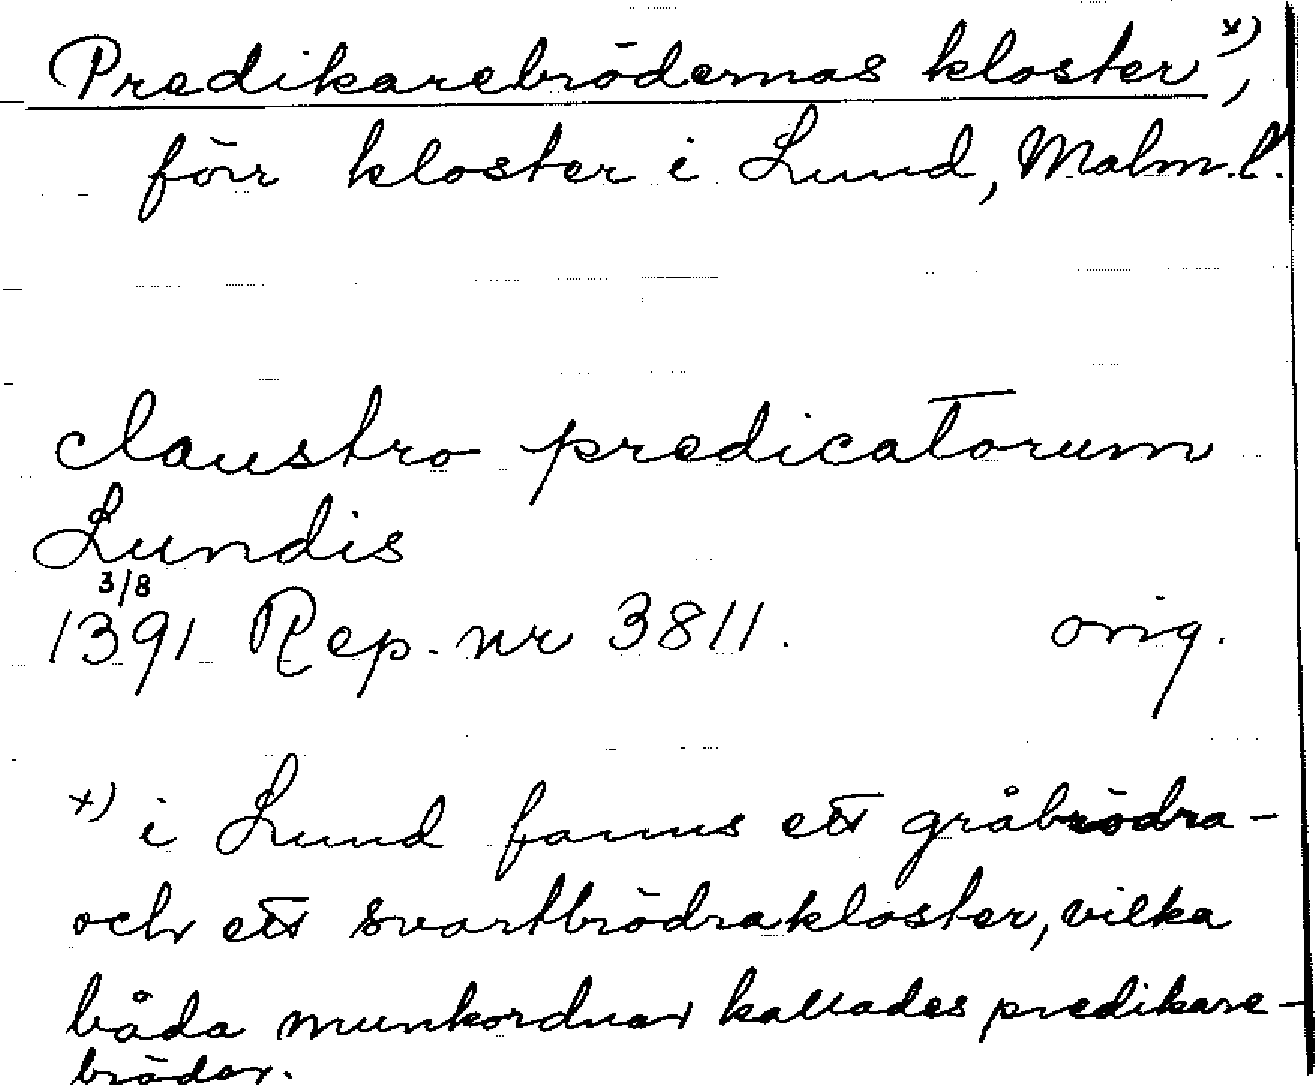 Predikarebrödernas kloster x),
förr kloster i Lund, Malm. l.
claustro predicatorum
Lundis
3/8
1391 Rep. nr 3811. orig.
x) i Lund fanns ett gråbrödra-
och ett svartbrödrakloster, vilka
båda munkordnar kallades predikare-
bröder.